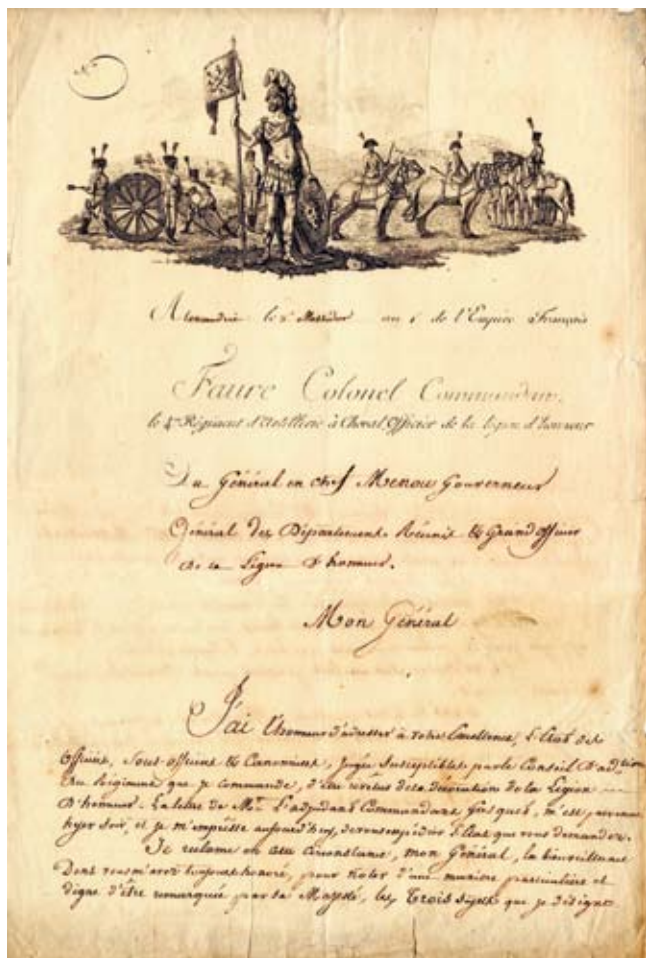 Alexandrie le 2 Messidor an 1 de l'Empire Français
Faure Colonel Commandant
le 4me Régiment d'Artillerie à Cheval Officier de la légion d'honneur
Au Général en chef Menou Gouverneur
Général des Départements Réunis & Grand officier
de la Légion d'honneur.
Mon Général
J'ai l'honneur d'adresser à votre Excellence, l'Etat des
officiers, Sous-officiers & Canonniers, jugés Susceptibles par le Conseil d'adtion
du Régiment que je commande, d'être revêtus de la décoration de la Légion
d'honneur. La lettre de Mr. L'adjudant Commandant m'est parvenue
hyer Soir, et je m'empresse aujourd'huy, de vous expédier l'Etat que vous demandez.
Je réclame en cette circonstance, mon Général, la bienveillance
Dont vous m'avez toujours honoré, pour noter d'une manière particulière et
digne d'être remarquée par Sa Majesté, les Trois Sujets que je désigne